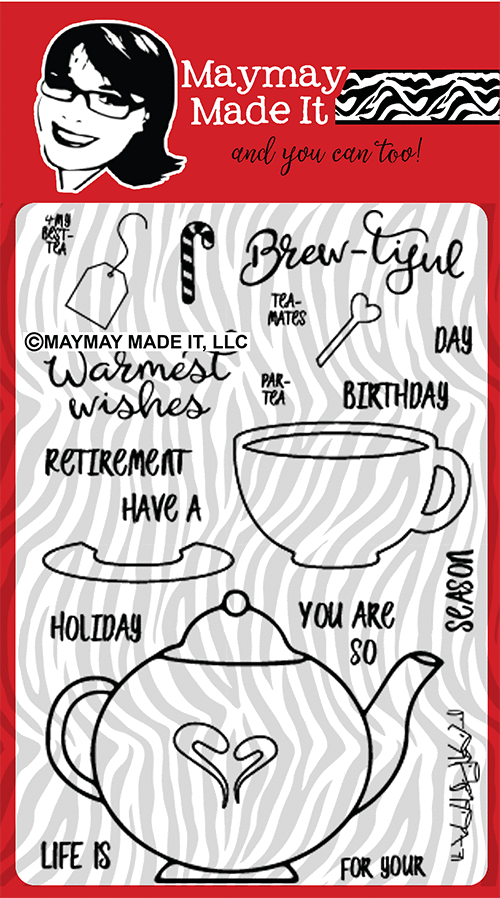 Maymay
Made It
and you can too!
4 MY
BEST-
TEA
Brew-tiful
TEA-
MATES
©MAYMAY MADE IT, LLC
DAY
Warmest
wishes
PAR-
TEA
BIRTHDAY
RETIREMENT
HAVE A
SEASON
HOLIDAY
YOU ARE
SO
LIFE IS
FOR YOUR